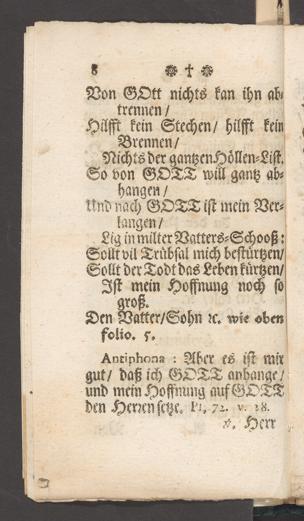 8 ❋ † ❋
Von GOtt nichts kan ihn ab-
trennen /
Hilfft kein Stechen / hilfft kein
Brennen /
Nichts der gantzen Höllen-List.
So von GOTT will gantz ab-
hangen /
Und nach GOTT ist mein Ver-
langen /
Lig in milter Vatters-Schooß :
Sollt vil Trübsal mich bestürtzen /
Sollt der Todt das Leben kürtzen /
Ist mein Hoffnung noch so
groß.
Den Vatter / Sohn ꝛc. wie oben
folio. 5.
Antiphona : Aber es ist mir
gut / daß ich GOTT anhange /
und mein Hoffnung auf GOTT
den Herren setze. Ps. 72. v. 28.
℣. Herr